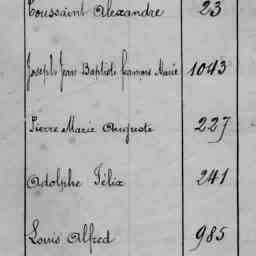 Toussaint Alexandre 23
Joseph Jean Baptiste François Marie 1043
Pierre Marie Auguste 227
Adolphe Félix 241
Louis Alfred 985